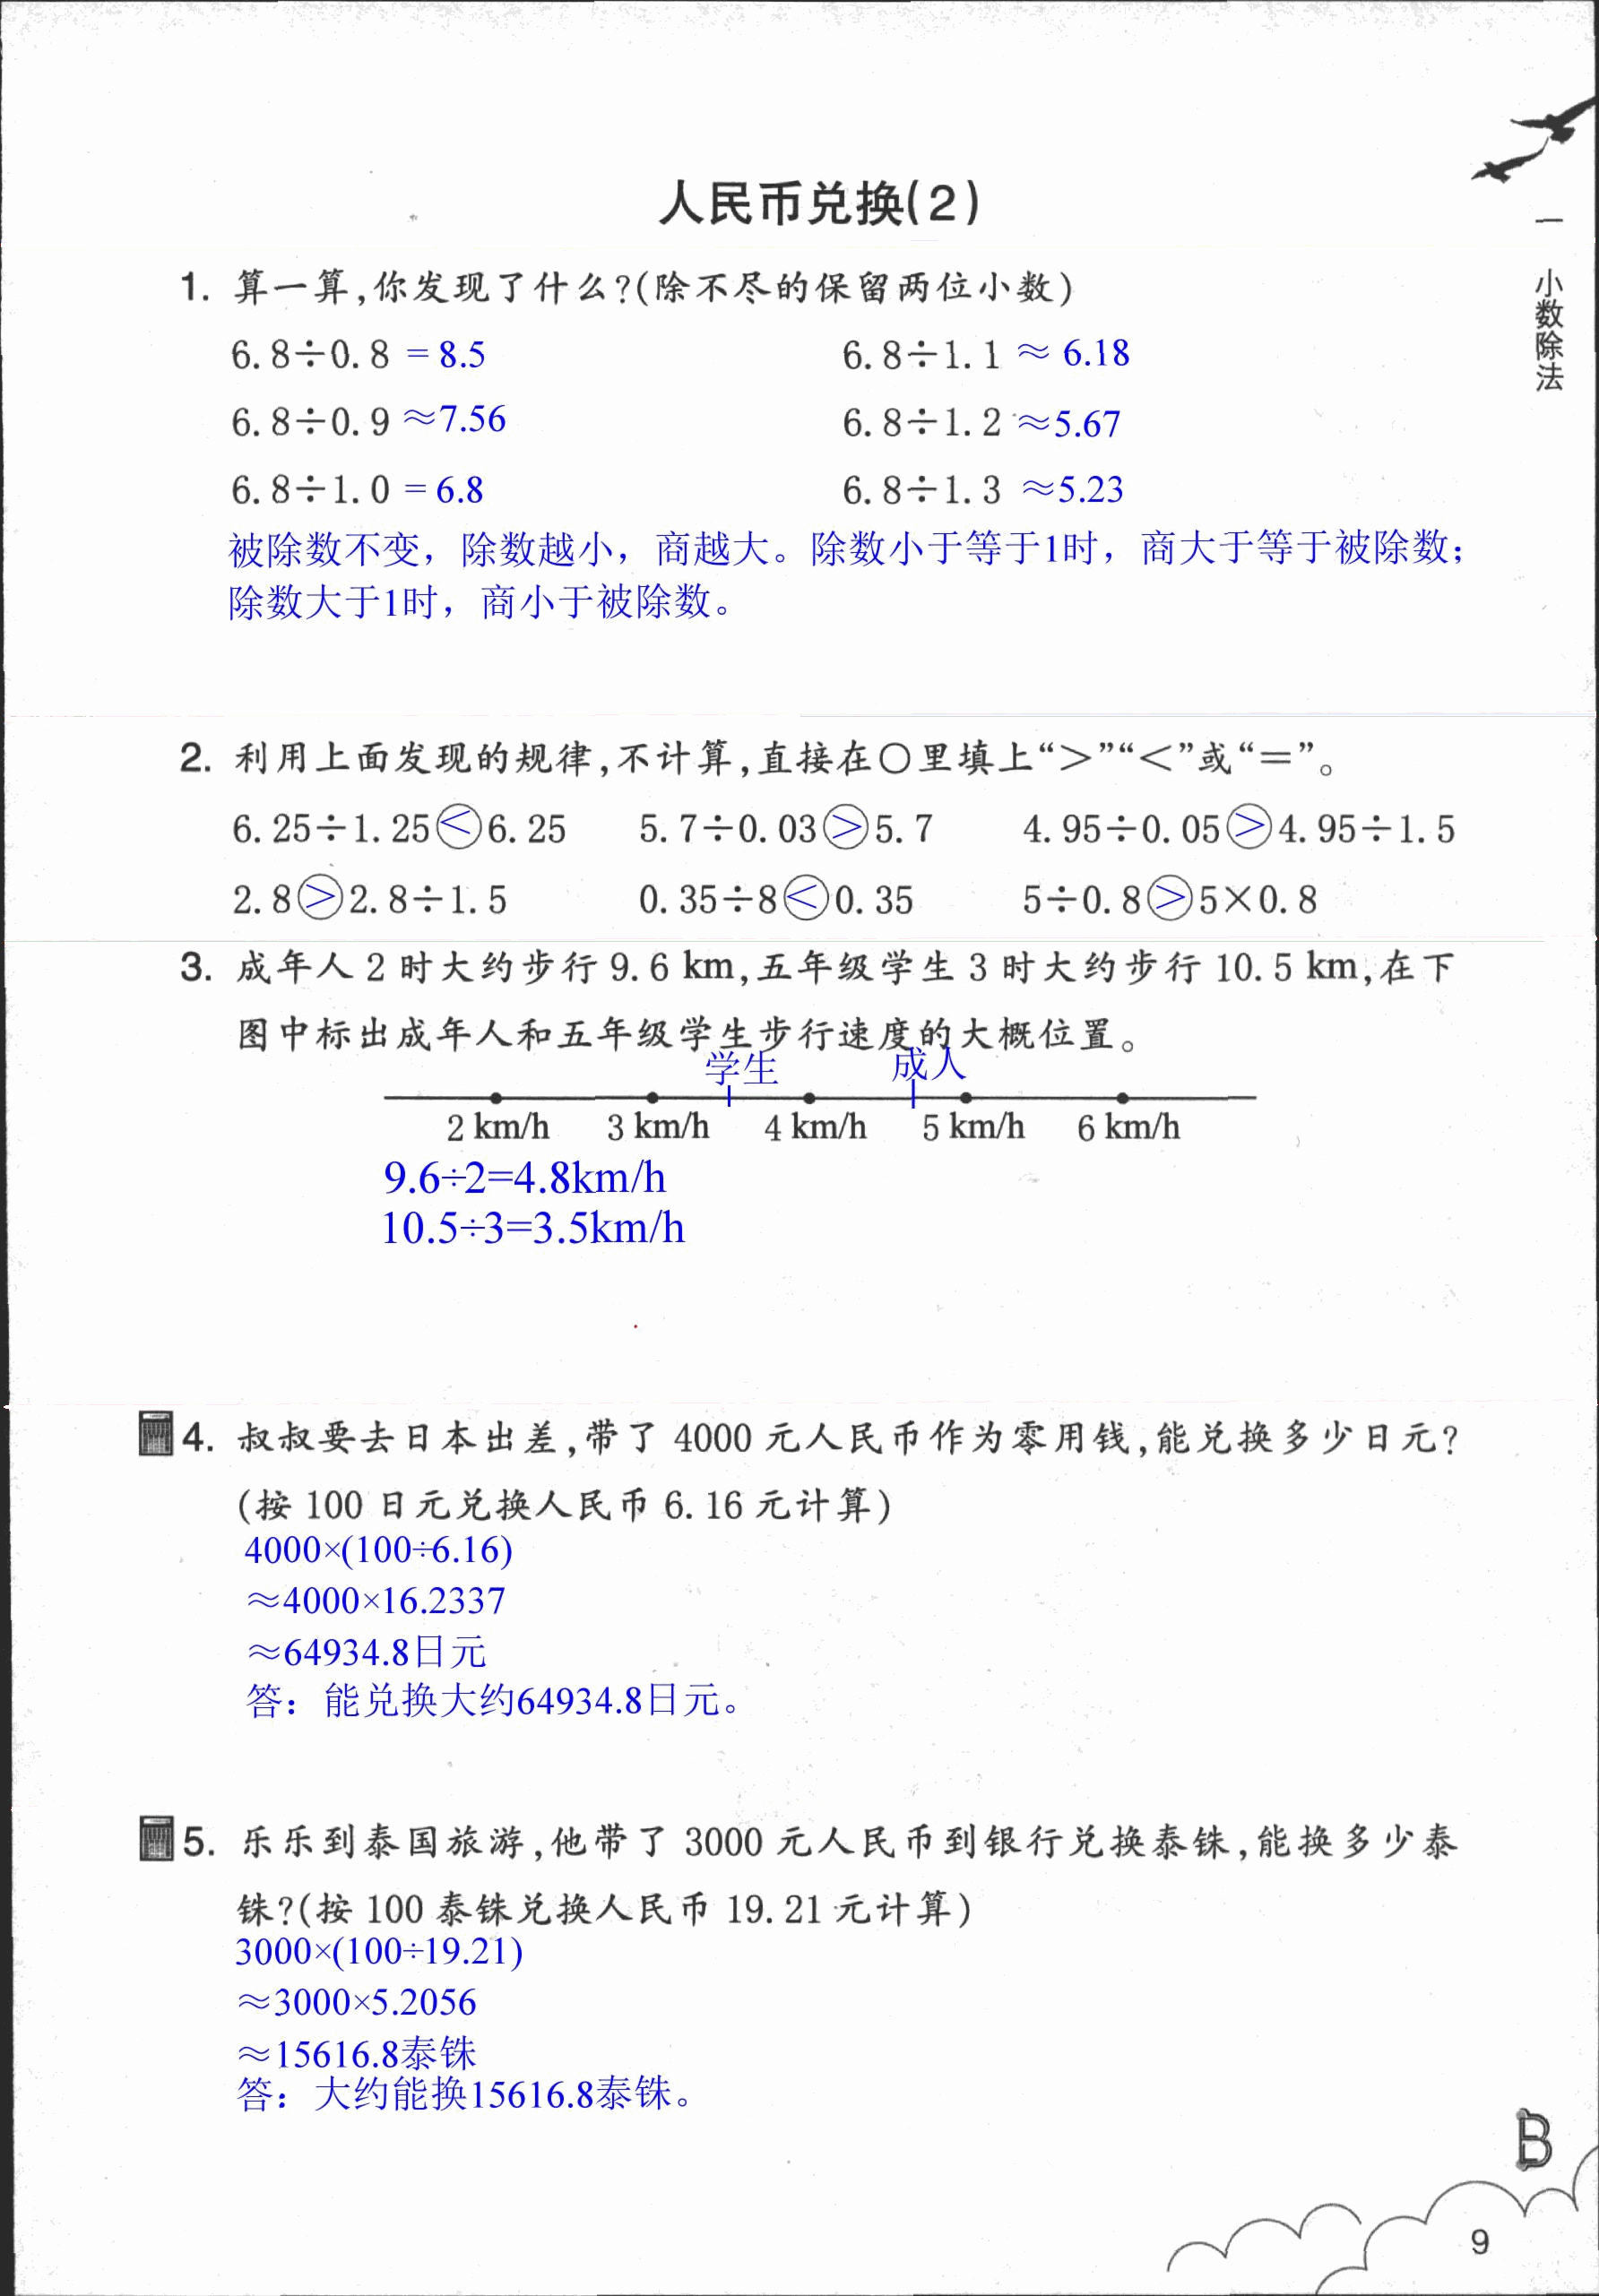 人民币兑换(2)
一 小数除法
1. 算一算,你发现了什么?(除不尽的保留两位小数)
6.8÷0.8 =8.5 6.8÷1.1 ≈ 6.18
6.8÷0.9 ≈7.56 6.8÷1.2 ≈5.67
6.8÷1.0 =6.8 6.8÷1.3 ≈5.23
被除数不变，除数越小，商越大。除数小于等于1时，商大于等于被除数；
除数大于1时，商小于被除数。
2. 利用上面发现的规律,不计算,直接在○里填上“>”“<”或“=”。
6.25÷1.25<6.25 5.7÷0.03>5.7 4.95÷0.05>4.95÷1.5
2.8>2.8÷1.5 0.35÷8<0.35 5÷0.8>5×0.8
3. 成年人 2 时大约步行 9.6 km,五年级学生 3 时大约步行 10.5 km,在下
图中标出成年人和五年级学生步行速度的大概位置。
学生 成人
2 km/h 3 km/h 4 km/h 5 km/h 6 km/h
9.6÷2=4.8km/h
10.5÷3=3.5km/h
4. 叔叔要去日本出差,带了 4000 元人民币作为零用钱,能兑换多少日元?
(按 100 日元兑换人民币 6.16 元计算)
4000×(100÷6.16)
≈4000×16.2337
≈64934.8日元
答：能兑换大约64934.8日元。
5. 乐乐到泰国旅游,他带了 3000 元人民币到银行兑换泰铢,能换多少泰
铢?(按 100 泰铢兑换人民币 19.21 元计算)
3000×(100÷19.21)
≈3000×5.2056
≈15616.8泰铢
答：大约能换15616.8泰铢。
B
9